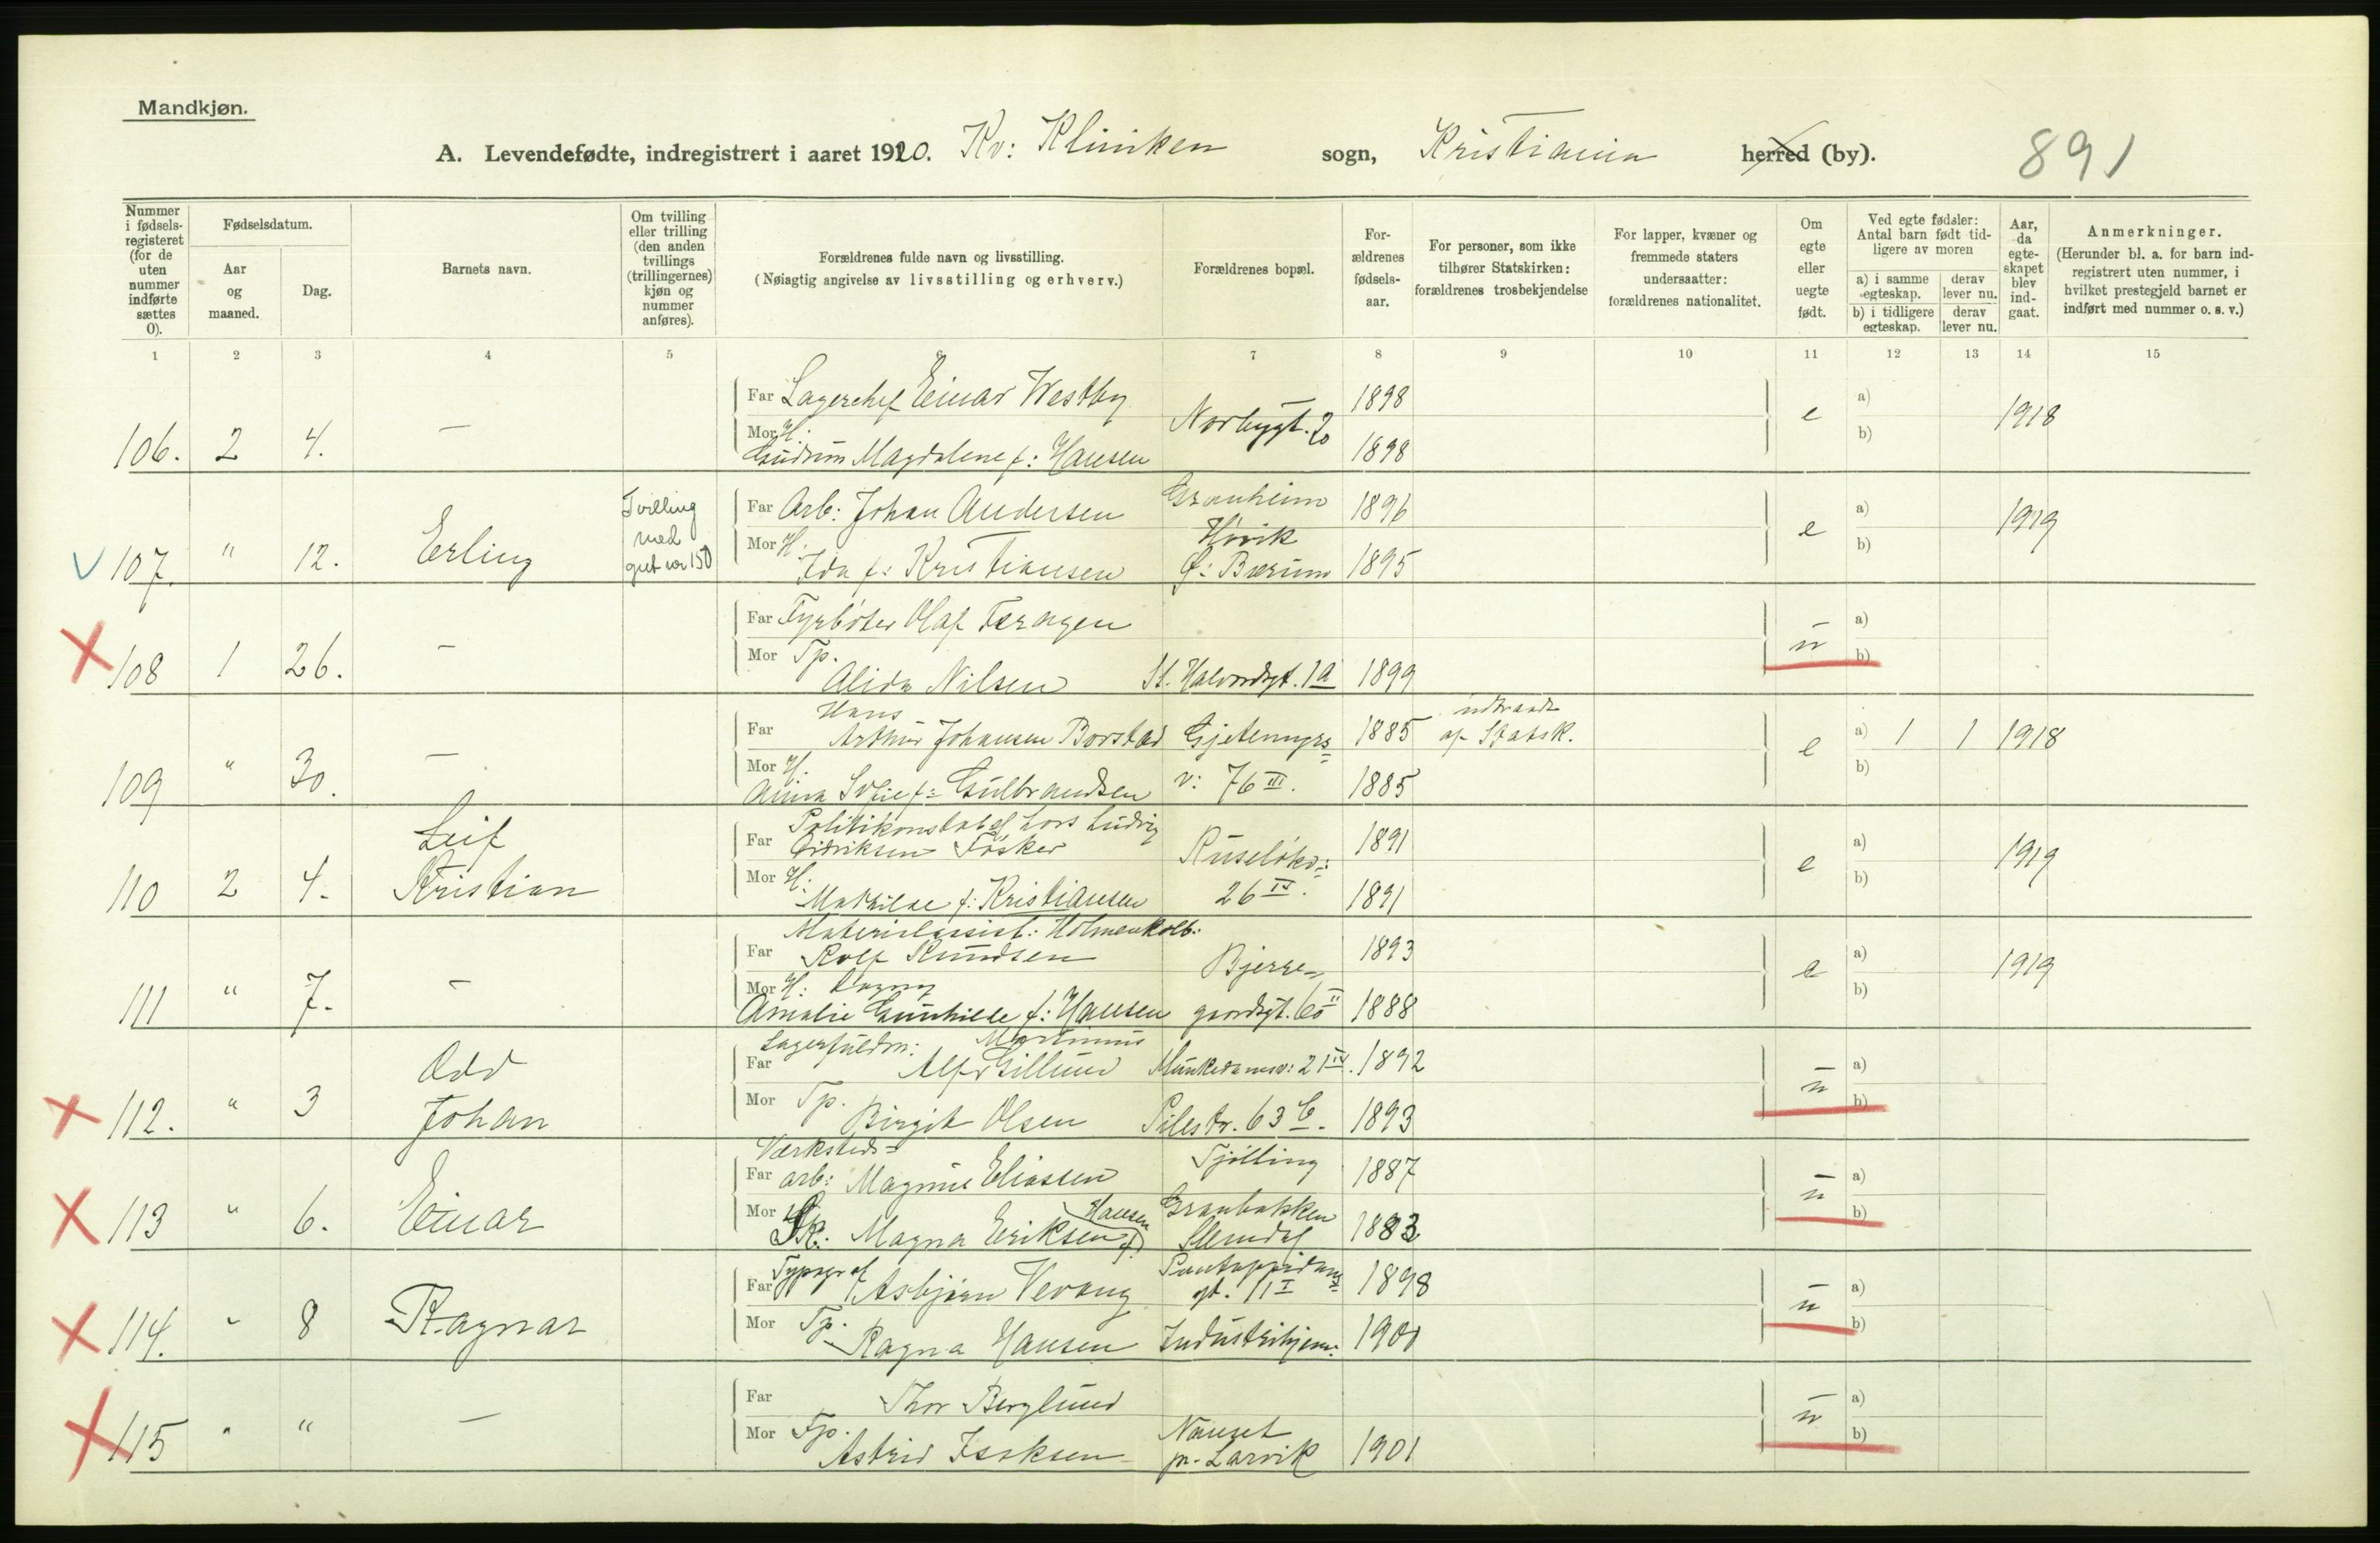 Mandkjøn.
A. Levendefødte, indregistrert i aaret 1920. Kv: Kliniken sogn, Kristiania herred (by). 891
Nummer i fødselsregisteret (for de uten nummer indførte sættes 0).
Fødselsdatum.
Aar og maaned.
Dag.
Barnets navn.
Om tvilling eller trilling (den anden tvillings (trillingernes) kjøn og nummer anføres).
Forældrenes fulde navn og livsstilling.
(Nøiagtig angivelse av livsstilling og erhverv.)
Forældrenes bopæl.
Forældrenes fødselsaar.
For personer, som ikke tilhører Statskirken: forældrenes trosbekjendelse
For lapper, kvæner og fremmede staters undersaatter: forældrenes nationalitet.
Om egte eller uegte født.
Ved egte fødsler: Antal barn født tidligere av moren
a) i samme egteskap. derav lever nu.
b) i tidligere egteskap. derav lever nu.
Aar, da egteskapet blev indgaat.
Anmerkninger.
(Herunder bl. a. for barn indregistrert uten nummer, i hvilket prestegjeld barnet er indført med nummer o. s. v.)
1 2 3 4 5 6 7 8 9 10 11 12 13 14 15
Far Lagerchef Einar Westby 1898 a)
106. 2 4. — Norbygt. 20 e 1918
Mor H. Gudrun Magdalene f: Hansen 1898 b)
Tvilling Far Arb: Johan Andersen Granheim 1896 a)
107. " 12. Erling med Høvik e 1919
Mor H. Ida f: Kristiansen Ø: Bærum 1895 b)
Far Fyrbøter Olaf a)
108 1 26. — u
Mor Tp. Alida Nilsen St. Halvordsgt. 1a 1899 b)
Hans utraadt
Far Arthur Johansen Borstad Gjetemyrs= 1885 af Statsk. a) 1 1 1918
109 " 30. — e
Mor H. Anna Sofie f: Gulbrandsen v: 76 III. 1885 b)
Leif Politikonstabel Lars Ludvig
Far Didriksen Fosker Ruseløkv: 1891 a)
110 2 4. Kristian e 1919
Mor H: Mathilde f: Kristiansen 26 IV. 1891 b)
Materialassist: Holmenkolb:
Far Rolf Knudsen Bjerre= 1893 a)
111 " 7. — e 1919
Mor H: Dagny
Amalie Gunhilde f: Hansen gaardsgt. 60 II 1888 b)
Lagerfuldm: Martinus
Odd Far Alf Gillund Munkedamsv: 21 IV. 1892 a)
112. " 3 Johan u
Mor Tp. Birgit Olsen Pilestr. 63 C. 1893 b)
Værksteds=
Far arb: Magnus Eliassen Tjølling 1887 a)
113 " 6. Einar u
Mor Sk: Magna Eriksen f. Hansen Granbakken Slemdal 1883 b)
Typograf
Far Asbjørn Vevang gt. 11 I 1898 a)
114. " 8 Ragnar u
Mor Tp. Ragna Hansen Industrihjem: 1900 b)
Far Thor Berglund a)
115 " " — u
Mor Tp. Astrid Isaksen Nanset pr. Larvik 1901 b)